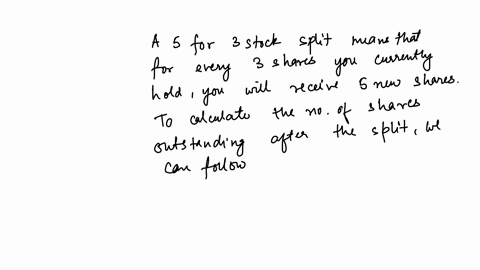 A 5 for 3 stock split means that
for every 3 shares you currently
hold, you will receive 5 new shares.
To calculate the no. of shares
outstanding after the split, we
can follow